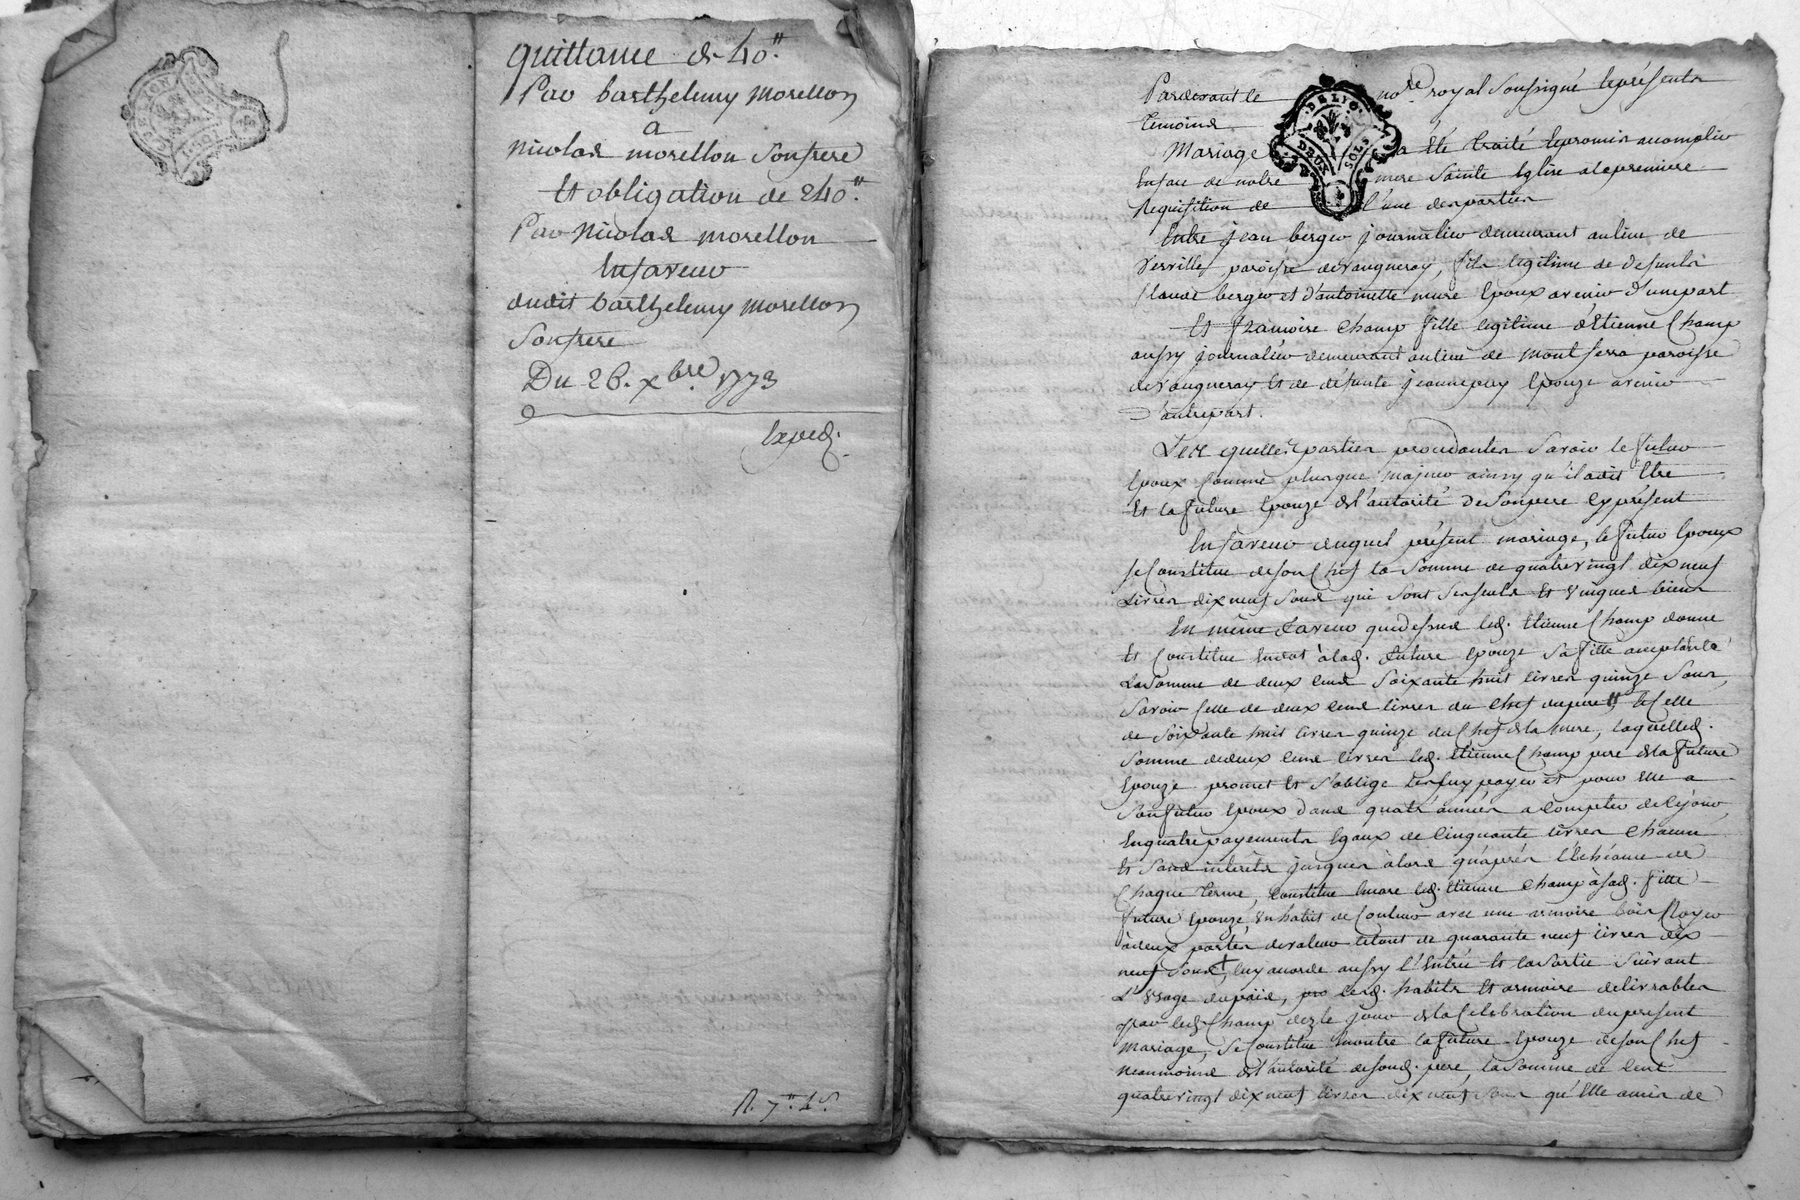 quittance de 40.ₗₜ
Par barthelemy morellon
a
nicolas morellon Son frere
Et obligation de 240.ₗₜ
Par Nicolas morellon
En faveur
dudit barthelemy morellon
Son frere
Du 26. xbre 1773
Exped.
DE LYON
R. 7ₗₜ 4s.
Pardevant le no.re royal Soussigné Et présents
temoins
DE LYO
DEUX SOLS
Mariage a Eté traité Et promis accomplir
En face de notre mere Sainte Eglise a la premiere
Requisition de l'une des parties
Entre jean berger journalier demeurant au lieu de
Verville, paroisse de vaugneray, fils legitime de defunts
Claude berger et d'antoinette mure Epoux avenir d'une part
Et francoise Champ fille legitime d'Etienne Champ
aussy journalier demeurant au lieu de montferra paroisse
de vaugneray Et de defunte jeanne puy Epouze avenir
D'autre part.
Les quelles parties procedantes Savoir le futur
Epoux Comme plus que majeur ainsy qu'il a dit Etre
Et la future Epouze de l'autorité De Son pere Cy présent
En faveur duquel présent mariage, le futur Epoux
Se Constitue de Son Chef la Somme de quatre vingt dix neuf
Livres dix neuf Sous qui Sont Ses Seuls Et uniques biens
En même faveur que dessus led. Etienne Champ donne
Et Constitue En dot à lad. future Epouze Sa fille acceptante
La Somme de deux Cens Soixante huit livres quinze Sous,
Savoir Celle de deux Cens livres du Chef du pere, Et Celle
de Soixante huit livres quinze du Chef de la mere, laquelle d.
Somme de deux Cens livres led. Etienne Champ pere de la future
Epouze promet Et S'oblige luy payer et pour Elle a
Son futur Epoux Dans quatre années a Compter de Ce jour
En quatre payements Egaux de Cinquante livres Chacun
Et Sans intérêts jusques àlors qu'après l'Echéance de
Chaque terme, Constitue Encore led. Etienne Champ à Sad. fille
future Epouze, un habit de Couleur avec une armoire bois Noyer
à deux portes de valeur le tout de quarante neuf livres dix
neuf Sous, luy acorde aussy l'Entrée Et la Sortie Suivant
L'Usage du païs, lesd. habits Et armoire delivrables
par led. Champ dez le jour de la Celebration du présent
Mariage, Se Constitue En outre la future Epouze de Son Chef
Neanmoins de l'autorité de Sond. pere, la Somme de Cent
quatre vingt dix neuf livres dix neuf Sous qu'Elle a mis de